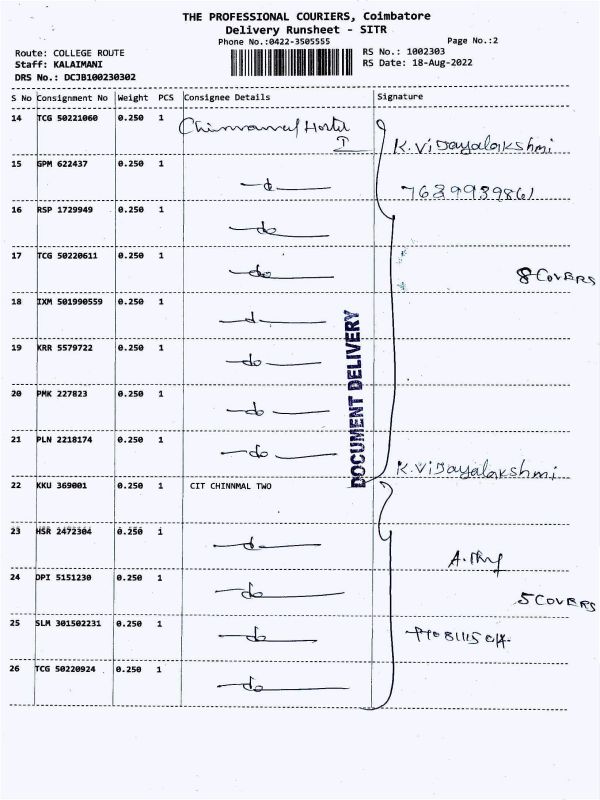 THE PROFESSIONAL COURIERS, Coimbatore
Delivery Runsheet - SITR
Phone No.:0422-3505555
Page No.:2
Route: COLLEGE ROUTE
RS No.: 1002303
Staff: KALAIMANI
RS Date: 18-Aug-2022
DRS No.: DCJB100230302
S No Consignment No Weight PCS Consignee Details Signature
14 TCG 50221060 0.250 1 Hostel I K. Vijayalakshmi
15 GPM 622437 0.250 1 do 7639939861
16 RSP 1729949 0.250 1 do
17 TCG 50220611 0.250 1 do 8 COVERS
18 IXM 501990559 0.250 1 do
19 KRR 5579722 0.250 1 do
20 PMK 227823 0.250 1 do
21 PLN 2218174 0.250 1 do K. Vijayalakshmi
DOCUMENT DELIVERY
22 KKU 369001 0.250 1 CIT CHINNMAL TWO
23 HSR 2472304 0.250 1 do
24 DPI 5151230 0.250 1 do 5 COVERS
25 SLM 301502231 0.250 1 do
26 TCG 50220924 0.250 1 do